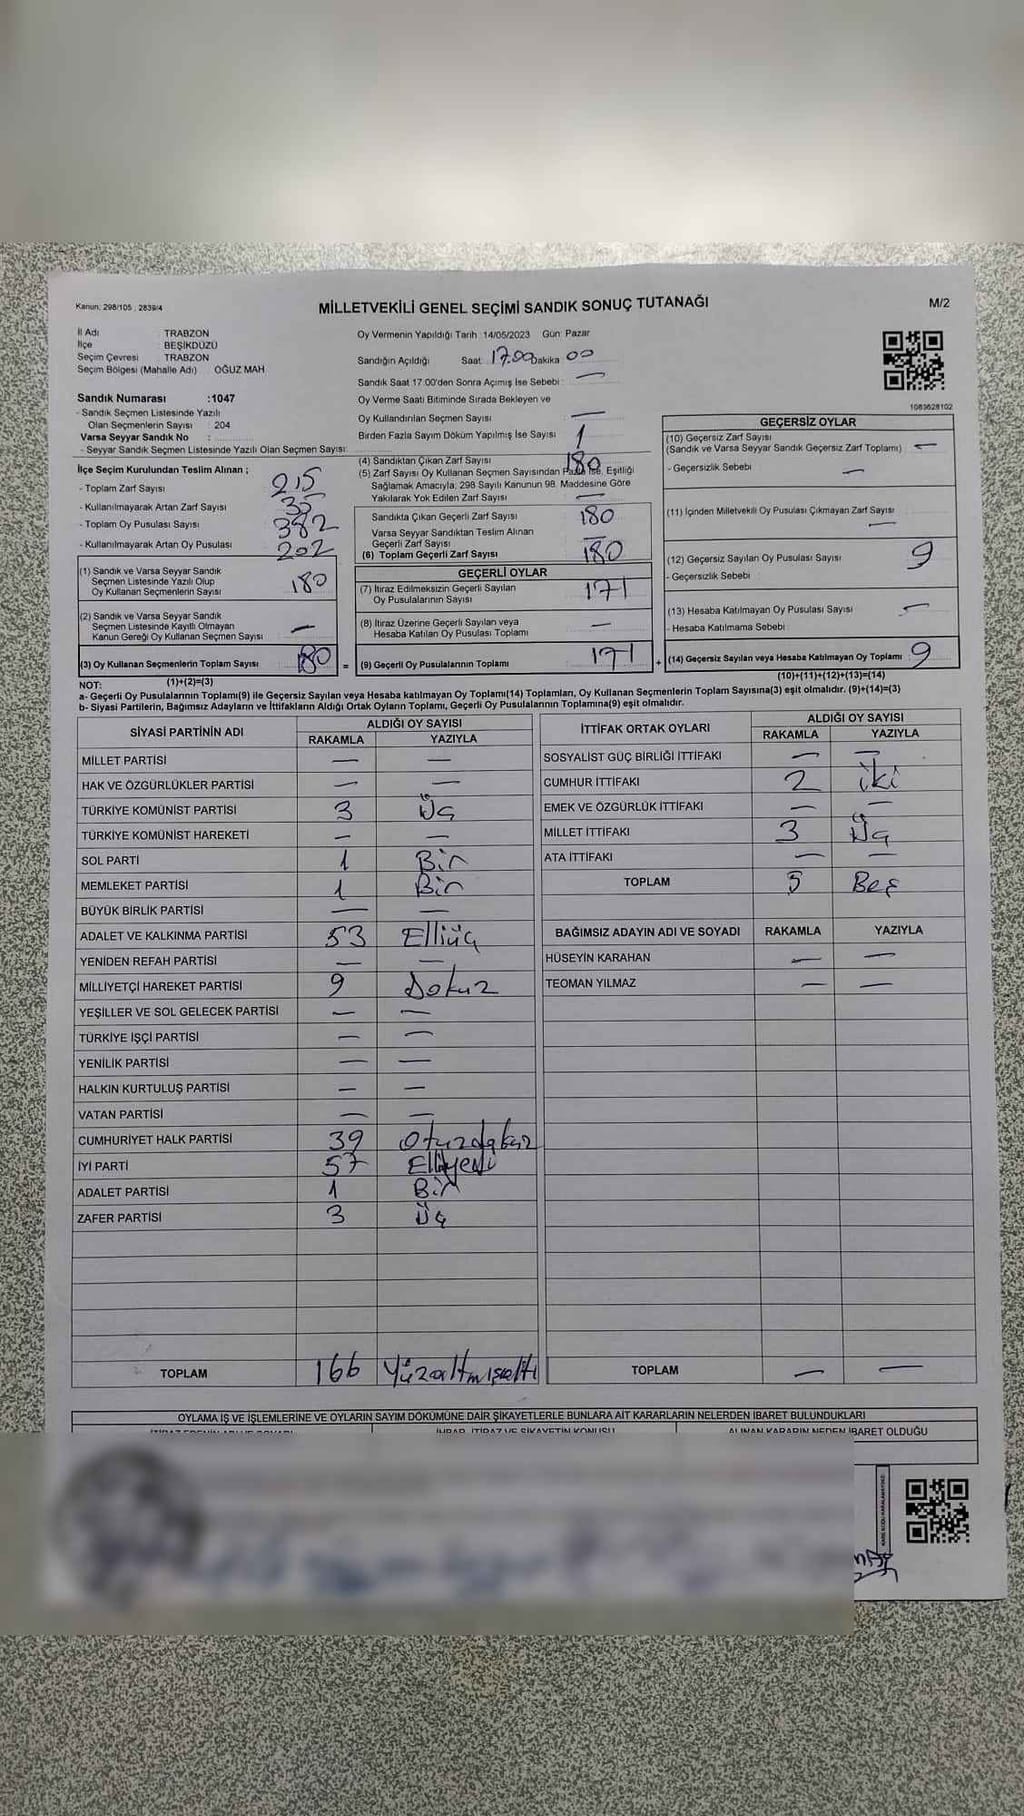 Kanun: 298/105 , 2839/4
MİLLETVEKİLİ GENEL SEÇİMİ SANDIK SONUÇ TUTANAĞI
M/2
İl Adı TRABZON
İlçe BEŞİKDÜZÜ
Seçim Çevresi TRABZON
Seçim Bölgesi (Mahalle Adı) OĞUZ MAH
Sandık Numarası :1047
- Sandık Seçmen Listesinde Yazılı
Olan Seçmenlerin Sayısı : 204
Varsa Seyyar Sandık No :
- Seyyar Sandık Seçmen Listesinde Yazılı Olan Seçmen Sayısı:
Oy Vermenin Yapıldığı Tarih 14/05/2023 Gün: Pazar
Sandığın Açıldığı Saat 17.00 Dakika 00
Sandık Saat 17.00'den Sonra Açımış İse Sebebi : —
Oy Verme Saati Bitiminde Sırada Bekleyen ve
Oy Kullandırılan Seçmen Sayısı —
Birden Fazla Sayım Döküm Yapılmış İse Sayısı 1
1083628102
İlçe Seçim Kurulundan Teslim Alınan ;
- Toplam Zarf Sayısı 215
- Kullanılmayarak Artan Zarf Sayısı 35
- Toplam Oy Pusulası Sayısı 382
- Kullanılmayarak Artan Oy Pusulası 202
(1) Sandık ve Varsa Seyyar Sandık
Seçmen Listesinde Yazılı Olup
Oy Kullanan Seçmenlerin Sayısı 180
(2) Sandık ve Varsa Seyyar Sandık
Seçmen Listesinde Kayıtlı Olmayan
Kanun Gereği Oy Kullanan Seçmen Sayısı —
(3) Oy Kullanan Seçmenlerin Toplam Sayısı 180 =
(4) Sandıktan Çıkan Zarf Sayısı 180
(5) Zarf Sayısı Oy Kullanan Seçmen Sayısından Fazla ise, Eşitliği
Sağlamak Amacıyla; 298 Sayılı Kanunun 98. Maddesine Göre
Yakılarak Yok Edilen Zarf Sayısı —
Sandıkta Çıkan Geçerli Zarf Sayısı 180
Varsa Seyyar Sandıktan Teslim Alınan
Geçerli Zarf Sayısı —
(6) Toplam Geçerli Zarf Sayısı 180
GEÇERLİ OYLAR
(7) İtiraz Edilmeksizin Geçerli Sayılan
Oy Pusulalarının Sayısı 171
(8) İtiraz Üzerine Geçerli Sayılan veya
Hesaba Katılan Oy Pusulası Toplamı —
(9) Geçerli Oy Pusulalarının Toplamı 171 +
GEÇERSİZ OYLAR
(10) Geçersiz Zarf Sayısı
(Sandık ve Varsa Seyyar Sandık Geçersiz Zarf Toplamı) —
- Geçersizlik Sebebi —
(11) İçinden Milletvekili Oy Pusulası Çıkmayan Zarf Sayısı —
(12) Geçersiz Sayılan Oy Pusulası Sayısı 9
- Geçersizlik Sebebi
(13) Hesaba Katılmayan Oy Pusulası Sayısı —
- Hesaba Katılmama Sebebi
(14) Geçersiz Sayılan veya Hesaba Katılmayan Oy Toplamı 9
NOT: (1)+(2)=(3) (10)+(11)+(12)+(13)=(14)
a- Geçerli Oy Pusulalarının Toplamı(9) ile Geçersiz Sayılan veya Hesaba katılmayan Oy Toplamı(14) Toplamları, Oy Kullanan Seçmenlerin Toplam Sayısına(3) eşit olmalıdır. (9)+(14)=(3)
b- Siyasi Partilerin, Bağımsız Adayların ve İttifakların Aldığı Ortak Oyların Toplamı, Geçerli Oy Pusulalarının Toplamına(9) eşit olmalıdır.
SİYASİ PARTİNİN ADI ALDIĞI OY SAYISI
RAKAMLA YAZIYLA
MİLLET PARTİSİ — —
HAK VE ÖZGÜRLÜKLER PARTİSİ — —
TÜRKİYE KOMÜNİST PARTİSİ 3 Üç
TÜRKİYE KOMÜNİST HAREKETİ — —
SOL PARTİ 1 Bir
MEMLEKET PARTİSİ 1 Bir
BÜYÜK BİRLİK PARTİSİ — —
ADALET VE KALKINMA PARTİSİ 53 Elliüç
YENİDEN REFAH PARTİSİ — —
MİLLİYETÇİ HAREKET PARTİSİ 9 Dokuz
YEŞİLLER VE SOL GELECEK PARTİSİ — —
TÜRKİYE İŞÇİ PARTİSİ — —
YENİLİK PARTİSİ — —
HALKIN KURTULUŞ PARTİSİ — —
VATAN PARTİSİ — —
CUMHURİYET HALK PARTİSİ 39 Otuzdokuz
İYİ PARTİ 57 Elliyedi
ADALET PARTİSİ 1 Bir
ZAFER PARTİSİ 3 Üç
TOPLAM 166 Yüzaltmışaltı
İTTİFAK ORTAK OYLARI ALDIĞI OY SAYISI
RAKAMLA YAZIYLA
SOSYALİST GÜÇ BİRLİĞİ İTTİFAKI — —
CUMHUR İTTİFAKI 2 iki
EMEK VE ÖZGÜRLÜK İTTİFAKI — —
MİLLET İTTİFAKI 3 Üç
ATA İTTİFAKI — —
TOPLAM 5 Beş
BAĞIMSIZ ADAYIN ADI VE SOYADI RAKAMLA YAZIYLA
HÜSEYİN KARAHAN — —
TEOMAN YILMAZ — —
TOPLAM — —
OYLAMA İŞ VE İŞLEMLERİNE VE OYLARIN SAYIM DÖKÜMÜNE DAİR ŞİKAYETLERLE BUNLARA AİT KARARLARIN NELERDEN İBARET BULUNDUKLARI
İHBAR, İTİRAZ VE ŞİKAYETİN KONUSU ALINAN KARARIN NEDEN İBARET OLDUĞU